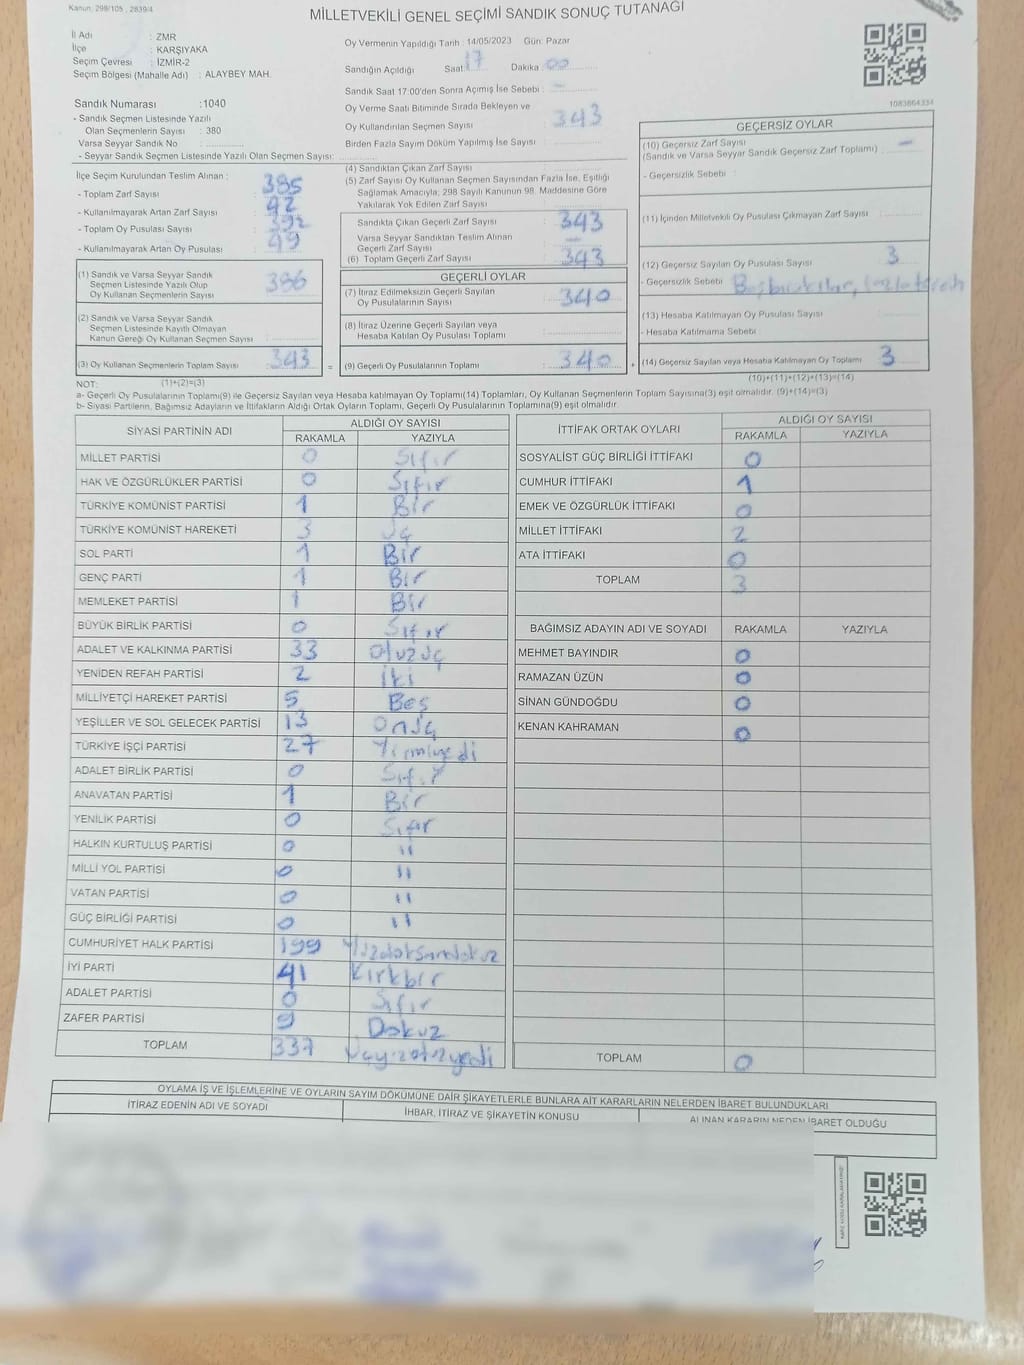 Kanun: 298/105 , 2839/4
MİLLETVEKİLİ GENEL SEÇİMİ SANDIK SONUÇ TUTANAĞI
İl Adı : İZMİR
İlçe : KARŞIYAKA
Seçim Çevresi : İZMİR-2
Seçim Bölgesi (Mahalle Adı) : ALAYBEY MAH.
Oy Vermenin Yapıldığı Tarih : 14/05/2023 Gün: Pazar
Sandığın Açıldığı Saat: 17 Dakika: 00
Sandık Saat 17:00'den Sonra Açılmış İse Sebebi : -
Sandık Numarası : 1040
- Sandık Seçmen Listesinde Yazılı
Olan Seçmenlerin Sayısı : 380
Varsa Seyyar Sandık No :
- Seyyar Sandık Seçmen Listesinde Yazılı Olan Seçmen Sayısı:
Oy Verme Saati Bitiminde Sırada Bekleyen ve
Oy Kullandırılan Seçmen Sayısı : 343
Birden Fazla Sayım Döküm Yapılmış İse Sayısı :
1083864334
İlçe Seçim Kurulundan Teslim Alınan :
- Toplam Zarf Sayısı : 385
- Kullanılmayarak Artan Zarf Sayısı : 42
- Toplam Oy Pusulası Sayısı : 392
- Kullanılmayarak Artan Oy Pusulası : 49
(1) Sandık ve Varsa Seyyar Sandık
Seçmen Listesinde Yazılı Olup
Oy Kullanan Seçmenlerin Sayısı :
(2) Sandık ve Varsa Seyyar Sandık
Seçmen Listesinde Kayıtlı Olmayan
Kanun Gereği Oy Kullanan Seçmen Sayısı :
(3) Oy Kullanan Seçmenlerin Toplam Sayısı : 343
(1)+(2)=(3)
(4) Sandıktan Çıkan Zarf Sayısı :
(5) Zarf Sayısı Oy Kullanan Seçmen Sayısından Fazla İse, Eşitliği
Sağlamak Amacıyla; 298 Sayılı Kanunun 98. Maddesine Göre
Yakılarak Yok Edilen Zarf Sayısı :
Sandıkta Çıkan Geçerli Zarf Sayısı : 343
Varsa Seyyar Sandıktan Teslim Alınan
Geçerli Zarf Sayısı : -
(6) Toplam Geçerli Zarf Sayısı : 343
GEÇERLİ OYLAR
(7) İtiraz Edilmeksizin Geçerli Sayılan
Oy Pusulalarının Sayısı : 340
(8) İtiraz Üzerine Geçerli Sayılan veya
Hesaba Katılan Oy Pusulası Toplamı :
= (9) Geçerli Oy Pusulalarının Toplamı : 340 +
GEÇERSİZ OYLAR
(10) Geçersiz Zarf Sayısı
(Sandık ve Varsa Seyyar Sandık Geçersiz Zarf Toplamı) : -
- Geçersizlik Sebebi :
(11) İçinden Milletvekili Oy Pusulası Çıkmayan Zarf Sayısı :
(12) Geçersiz Sayılan Oy Pusulası Sayısı : 3
- Geçersizlik Sebebi :
(13) Hesaba Katılmayan Oy Pusulası Sayısı :
- Hesaba Katılmama Sebebi :
(14) Geçersiz Sayılan veya Hesaba Katılmayan Oy Toplamı : 3
(10)+(11)+(12)+(13)=(14)
NOT:
a- Geçerli Oy Pusulalarının Toplamı(9) ile Geçersiz Sayılan veya Hesaba katılmayan Oy Toplamı(14) Toplamları, Oy Kullanan Seçmenlerin Toplam Sayısına(3) eşit olmalıdır. (9)+(14)=(3)
b- Siyasi Partilerin, Bağımsız Adayların ve İttifakların Aldığı Ortak Oyların Toplamı, Geçerli Oy Pusulalarının Toplamına(9) eşit olmalıdır.
SİYASİ PARTİNİN ADI ALDIĞI OY SAYISI
RAKAMLA YAZIYLA
MİLLET PARTİSİ 0 Sıfır
HAK VE ÖZGÜRLÜKLER PARTİSİ 0 Sıfır
TÜRKİYE KOMÜNİST PARTİSİ 1 Bir
TÜRKİYE KOMÜNİST HAREKETİ 3 Üç
SOL PARTİ 1 Bir
GENÇ PARTİ 1 Bir
MEMLEKET PARTİSİ 1 Bir
BÜYÜK BİRLİK PARTİSİ 0 Sıfır
ADALET VE KALKINMA PARTİSİ 33 Otuzüç
YENİDEN REFAH PARTİSİ 2 İki
MİLLİYETÇİ HAREKET PARTİSİ 5 Beş
YEŞİLLER VE SOL GELECEK PARTİSİ 13 Onüç
TÜRKİYE İŞÇİ PARTİSİ 27 Yirmiyedi
ADALET BİRLİK PARTİSİ 0 Sıfır
ANAVATAN PARTİSİ 1 Bir
YENİLİK PARTİSİ 0 Sıfır
HALKIN KURTULUŞ PARTİSİ 0 "
MİLLİ YOL PARTİSİ 0 "
VATAN PARTİSİ 0 "
GÜÇ BİRLİĞİ PARTİSİ 0 "
CUMHURİYET HALK PARTİSİ 199 Yüzdoksandokuz
İYİ PARTİ 41 Kırkbir
ADALET PARTİSİ 0 Sıfır
ZAFER PARTİSİ 9 Dokuz
TOPLAM 337 Üçyüzotuzyedi
İTTİFAK ORTAK OYLARI ALDIĞI OY SAYISI
RAKAMLA YAZIYLA
SOSYALİST GÜÇ BİRLİĞİ İTTİFAKI 0
CUMHUR İTTİFAKI 1
EMEK VE ÖZGÜRLÜK İTTİFAKI 0
MİLLET İTTİFAKI 2
ATA İTTİFAKI 0
TOPLAM 3
BAĞIMSIZ ADAYIN ADI VE SOYADI RAKAMLA YAZIYLA
MEHMET BAYINDIR 0
RAMAZAN ÜZÜN 0
SİNAN GÜNDOĞDU 0
KENAN KAHRAMAN 0
TOPLAM 0
OYLAMA İŞ VE İŞLEMLERİNE VE OYLARIN SAYIM DÖKÜMÜNE DAİR ŞİKAYETLERLE BUNLARA AİT KARARLARIN NELERDEN İBARET BULUNDUKLARI
İTİRAZ EDENİN ADI VE SOYADI İHBAR, İTİRAZ VE ŞİKAYETİN KONUSU ALINAN KARARIN NEDEN İBARET OLDUĞU